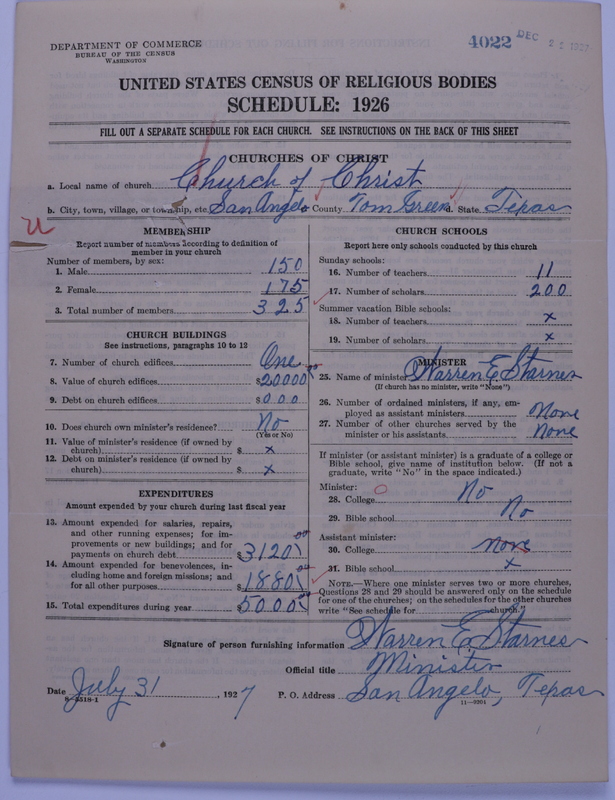 DEPARTMENT OF COMMERCE
BUREAU OF THE CENSUS
WASHINGTON
4022 DEC 22 1927
UNITED STATES CENSUS OF RELIGIOUS BODIES
SCHEDULE: 1926
FILL OUT A SEPARATE SCHEDULE FOR EACH CHURCH. SEE INSTRUCTIONS ON THE BACK OF THIS SHEET
CHURCHES OF CHRIST
a. Local name of church Church of Christ
b. City, town, village, or township, etc. San Angelo County Tom Green d. State Texas
U
MEMBERSHIP
Report number of members according to definition of
member in your church
Number of members, by sex:
1. Male 150
2. Female 175
3. Total number of members 325
CHURCH BUILDINGS
See instructions, paragraphs 10 to 12
7. Number of church edifices One
8. Value of church edifices $20000 00
9. Debt on church edifices $000
10. Does church own minister's residence? No
(Yes or No)
11. Value of minister's residence (if owned by
church) $ x
12. Debt on minister's residence (if owned by
church) $ x
EXPENDITURES
Amount expended by your church during last fiscal year
13. Amount expended for salaries, repairs,
and other running expenses; for im-
provements or new buildings; and for
payments on church debt $3120 00
14. Amount expended for benevolences, in-
cluding home and foreign missions; and
for all other purposes $1880 00
15. Total expenditures during year $5000 00
CHURCH SCHOOLS
Report here only schools conducted by this church
Sunday schools:
16. Number of teachers 11
17. Number of scholars 200
Summer vacation Bible schools:
18. Number of teachers x
19. Number of scholars x
MINISTER
25. Name of minister Warren E. Starnes
(If church has no minister, write "None")
26. Number of ordained ministers, if any, em-
ployed as assistant ministers None
27. Number of other churches served by the
minister or his assistants None
If minister (or assistant minister) is a graduate of a college or
Bible school, give name of institution below. (If not a
graduate, write "No" in the space indicated.)
Minister:
28. College No
29. Bible school No
Assistant minister:
30. College None
31. Bible school x
NOTE.—Where one minister serves two or more churches,
Questions 28 and 29 should be answered only on the schedule
for one of the churches; on the schedules for the other churches
write "See schedule for church."
Signature of person furnishing information Warren E. Starnes
Official title Minister
Date July 31, 1927 P. O. Address San Angelo, Texas
8-4518-1 11-9204